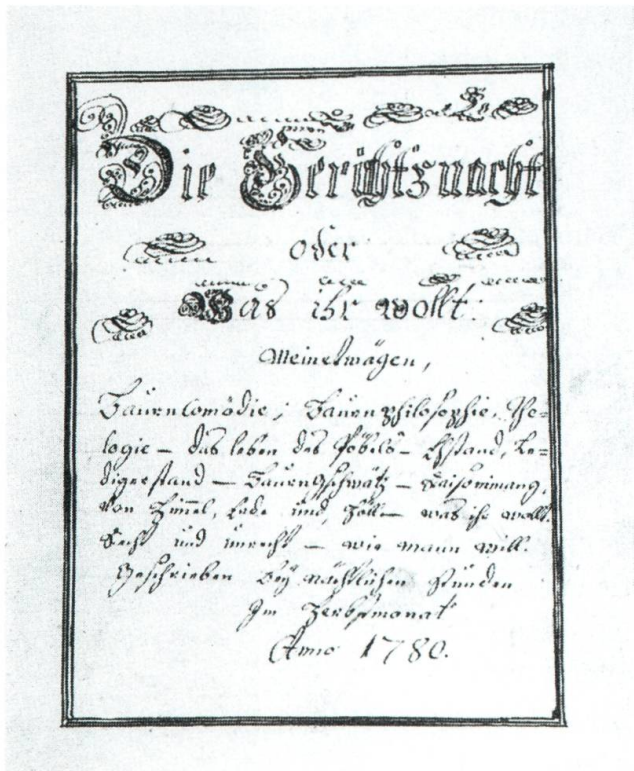 Die Gerichtsnacht
oder
Was ihr wollt.
Meinetwägen,
Baurencomödie; Baurenphilosophie. Theo=
logie – das leben des Pöbels – Ehstand, Le=
digerstand – Baurengschwätz – Raisonimang,
von Himel, Erde und Höll – was ihr wollt.
Recht und unrecht – wie mann will.
Geschrieben bey nächtlichen stunden
Im Herbstmonat
Anno 1780.